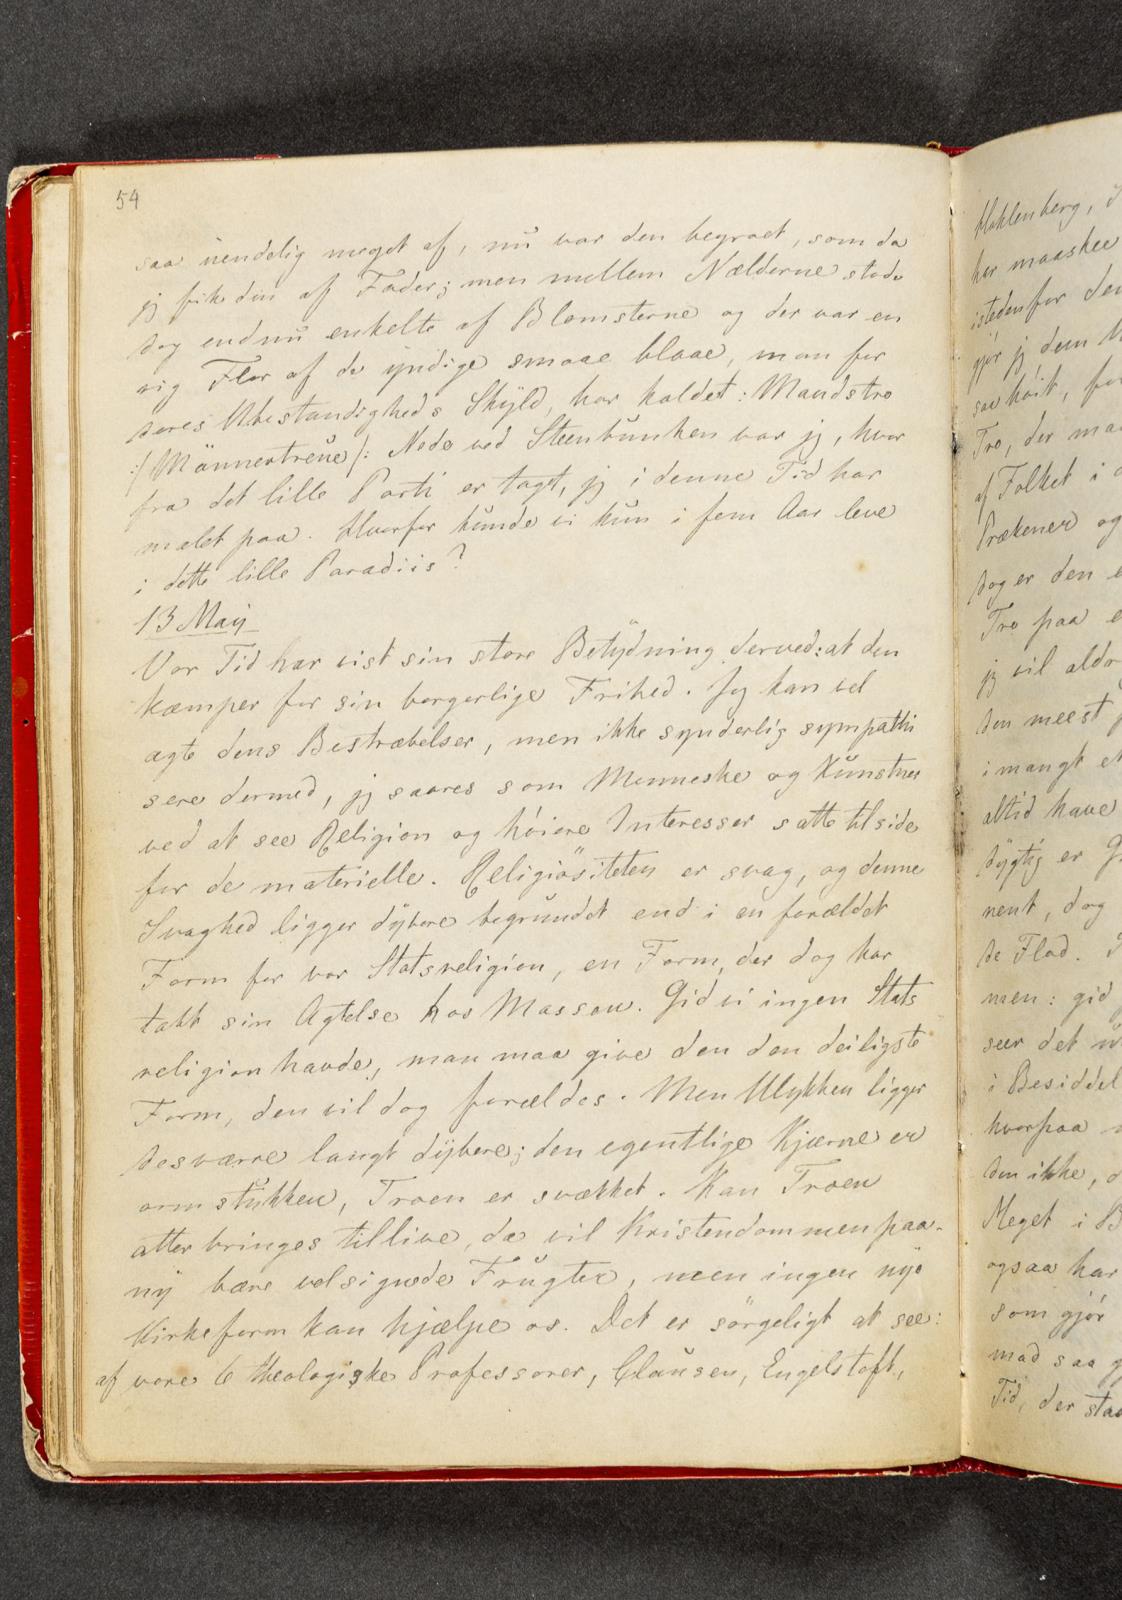 54
saa uendelig meget af, nu var den begroet, som da
jeg fik den af Fader; men mellem Nælderne stode
dog endnu enkelte af Blomsterne og der var en
rig Flor af de yndige smaae blaae, man for
deres Ubestandigheds Skyld, har kaldet: Mandstro
:/Männertreue/: Nede ved Steenbunken var jeg, hvor
fra det lille Parti er tagt, jeg i denne Tid har
malet paa. Hvorfor kunde vi kun i fem Aar leve
i dette lille Paradiis?
13 May
Vor Tid har vist sin store Betydning derved: at den
kæmper for sin borgerlige Frihed. Jeg kan vel
agte dens Bestræbelser, men ikke synderlig sympathi
sere dermed, jeg saares som Menneske og Kunstner
ved at see Religion og höiere Interesser satte tilside
for de materielle. Religiösiteten er svag, og denne
Svaghed ligger dybere begrundet end i en forældet
Form for vor Statsreligion, en Form, der dog har
tabt sin Agtelse hos Massen. Gid vi ingen Stats
religion havde, man maa give den den deiligste
Form, den vil dog forældes. Men Ulykken ligger
desværre langt dybere; den egentlige Kjærne er
ormstukken, Troen er svækket. Kan Troen
atter bringes tillive, da vil Kristendommen paa-
ny bære velsignede Frugter, men ingen nye
Kirkeform kan hjælpe os. Det er sörgeligt at see:
af vore 6 theologiske Professorer, Clausen, Engelstoft,
Hohlenberg,
har maaskee
istedenfor den
gjör jeg dem
saa höit, for
Tro, der
af Folket i
Prækener og
dog er den
Tro paa
jeg vil
den meest
i mangt
altid have
dygtig er
nent, dog
de Flod.
men: gid
seer det
i
hvorpaa
den ikke,
Meget i
ogsaa har
som gjör
mod saa
Tid, der